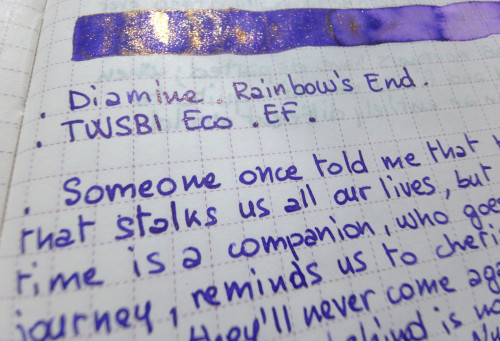 . Diamine. Rainbow's End.
. TWSBI Eco .EF.
. Someone once told me that
that stalks us all our lives, but
time is a companion, who goes
journey, reminds us to
they'll never come
behind is